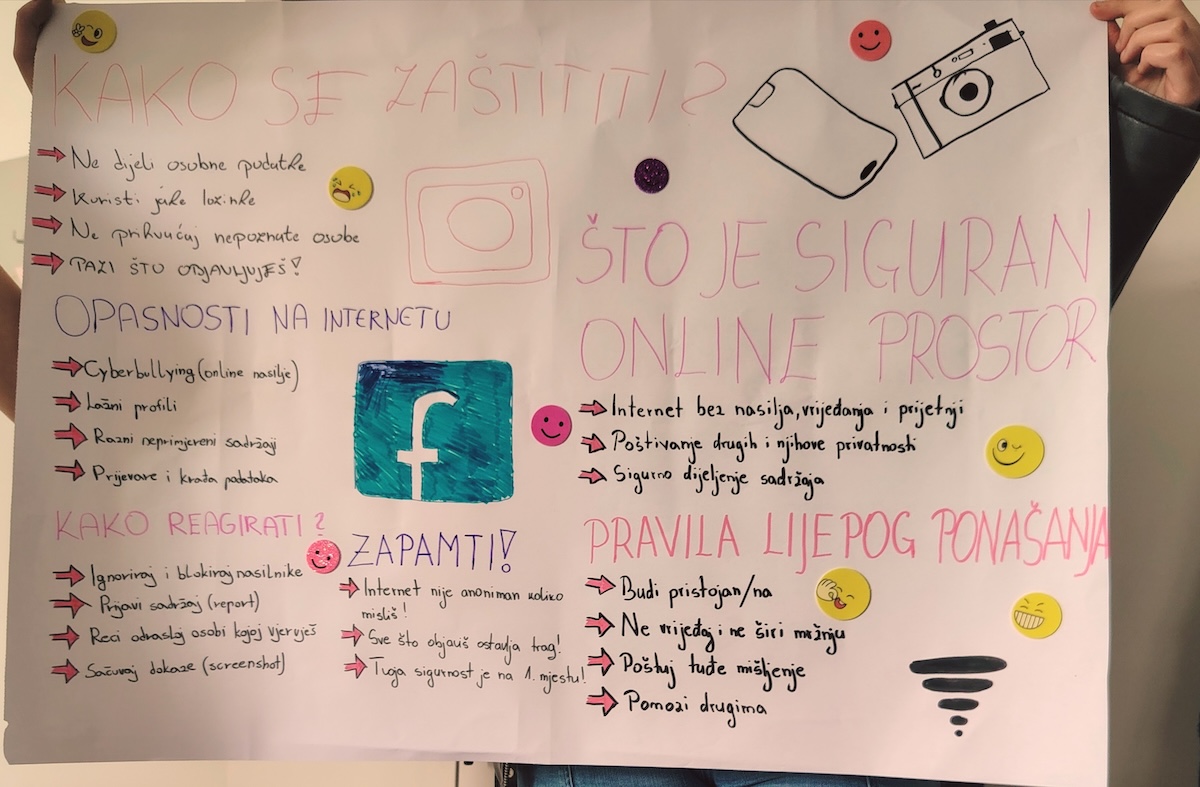 KAKO SE ZAŠTITITI?
Ne dijeli osobne podatke
Koristi jake lozinke
Ne prihvaćaj nepoznate osobe
PAZI ŠTO OBJAVLJUJEŠ!
OPASNOSTI NA INTERNETU
Cyberbullying (online nasilje)
Lažni profili
Razni neprimjereni sadržaji
Prijevare i krađa podataka
KAKO REAGIRATI?
Ignoriraj i blokiraj nasilnike
Prijavi sadržaj (report)
Reci odrasloj osobi kojoj vjeruješ
Sačuvaj dokaze (screenshot)
f
ZAPAMTI!
Internet nije anoniman koliko
misliš!
Sve što objaviš ostavlja trag!
Tvoja sigurnost je na 1. mjestu!
ŠTO JE SIGURAN
ONLINE PROSTOR
Internet bez nasilja, vrijeđanja i prijetnji
Poštivanje drugih i njihove privatnosti
Sigurno dijeljenje sadržaja
PRAVILA LIJEPOG PONAŠANJA
Budi pristojan/na
Ne vrijeđaj i ne širi mržnju
Poštuj tuđe mišljenje
Pomozi drugima